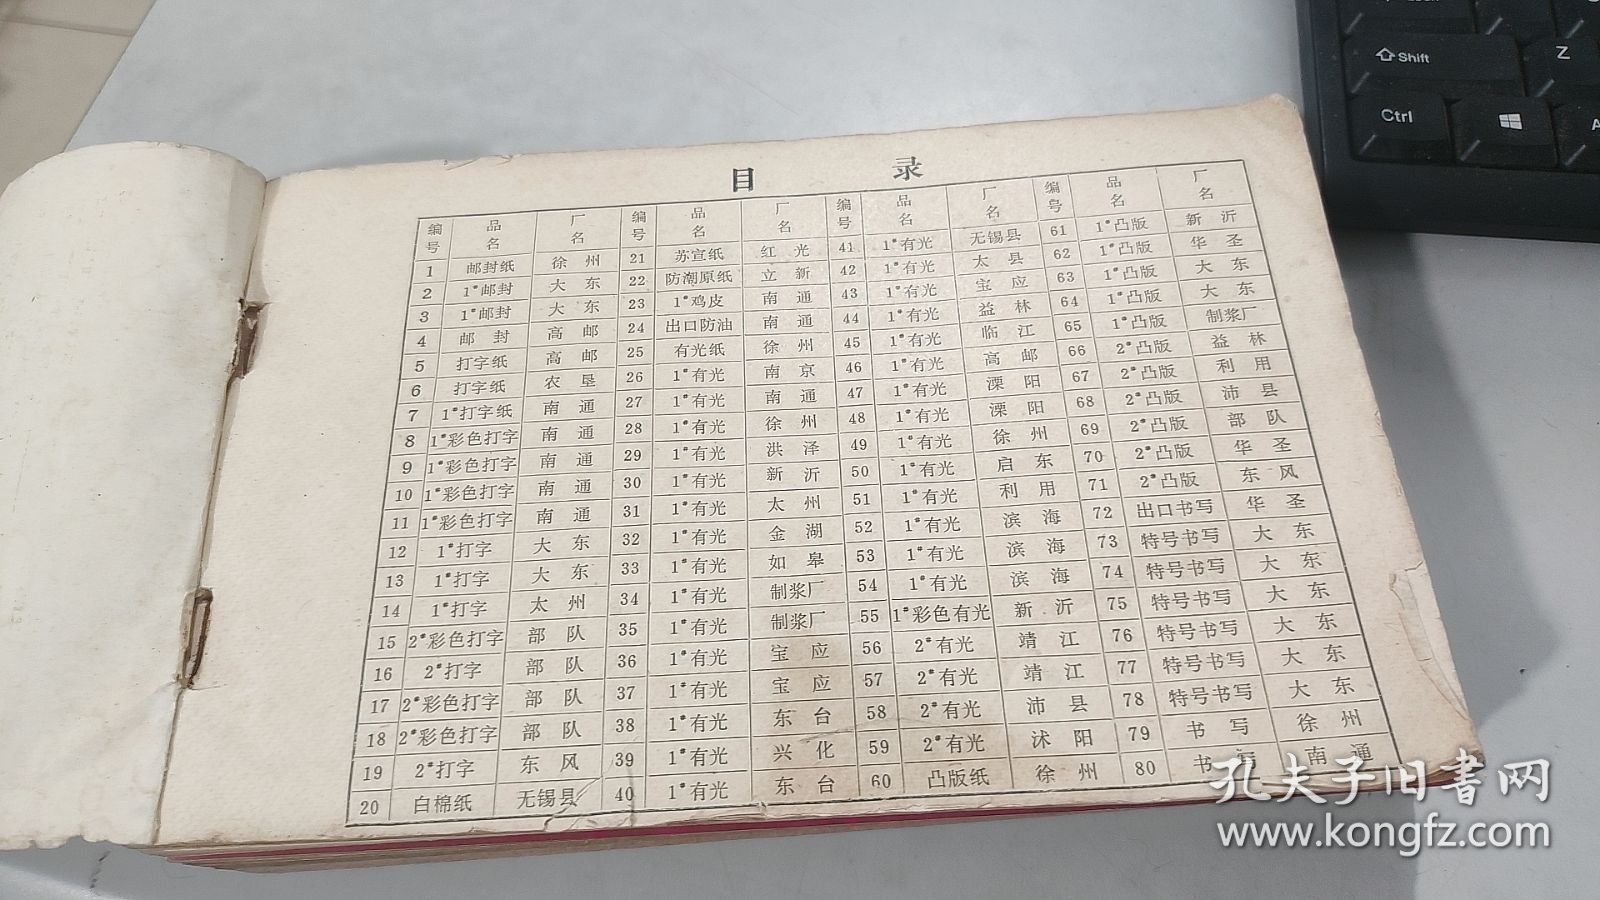 目 录
编号 品名 厂名 编号 品名 厂名 编号 品名 厂名 编号 品名 厂名
1 邮封纸 徐州 21 苏宣纸 红光 41 1#有光 无锡县 61 1#凸版 新沂
2 1#邮封 大东 22 防潮原纸 立新 42 1#有光 太县 62 1#凸版 华圣
3 1#邮封 大东 23 1#鸡皮 南通 43 1#有光 宝应 63 1#凸版 大东
4 邮封 高邮 24 出口防油 南通 44 1#有光 益林 64 1#凸版 大东
5 打字纸 高邮 25 有光纸 徐州 45 1#有光 临江 65 1#凸版 制浆厂
6 打字纸 农垦 26 1#有光 南京 46 1#有光 高邮 66 2#凸版 益林
7 1#打字纸 南通 27 1#有光 南通 47 1#有光 溧阳 67 2#凸版 利用
8 1#彩色打字 南通 28 1#有光 徐州 48 1#有光 溧阳 68 2#凸版 沛县
9 1#彩色打字 南通 29 1#有光 洪泽 49 1#有光 徐州 69 2#凸版 部队
10 1#彩色打字 南通 30 1#有光 新沂 50 1#有光 启东 70 2#凸版 华圣
11 1#彩色打字 南通 31 1#有光 太州 51 1#有光 利用 71 2#凸版 东风
12 1#打字 大东 32 1#有光 金湖 52 1#有光 滨海 72 出口书写 华圣
13 1#打字 大东 33 1#有光 如皋 53 1#有光 滨海 73 特号书写 大东
14 1#打字 太州 34 1#有光 制浆厂 54 1#有光 滨海 74 特号书写 大东
15 2#彩色打字 部队 35 1#有光 制浆厂 55 1#彩色有光 新沂 75 特号书写 大东
16 2#打字 部队 36 1#有光 宝应 56 2#有光 靖江 76 特号书写 大东
17 2#彩色打字 部队 37 1#有光 宝应 57 2#有光 靖江 77 特号书写 大东
18 2#彩色打字 部队 38 1#有光 东台 58 2#有光 沛县 78 特号书写 大东
19 2#打字 东风 39 1#有光 兴化 59 2#有光 沭阳 79 书写 徐州
20 白棉纸 无锡县 40 1#有光 东台 60 凸版纸 徐州 80 书写 南通
Shift
Z
Ctrl
孔夫子旧书网
www.kongfz.com